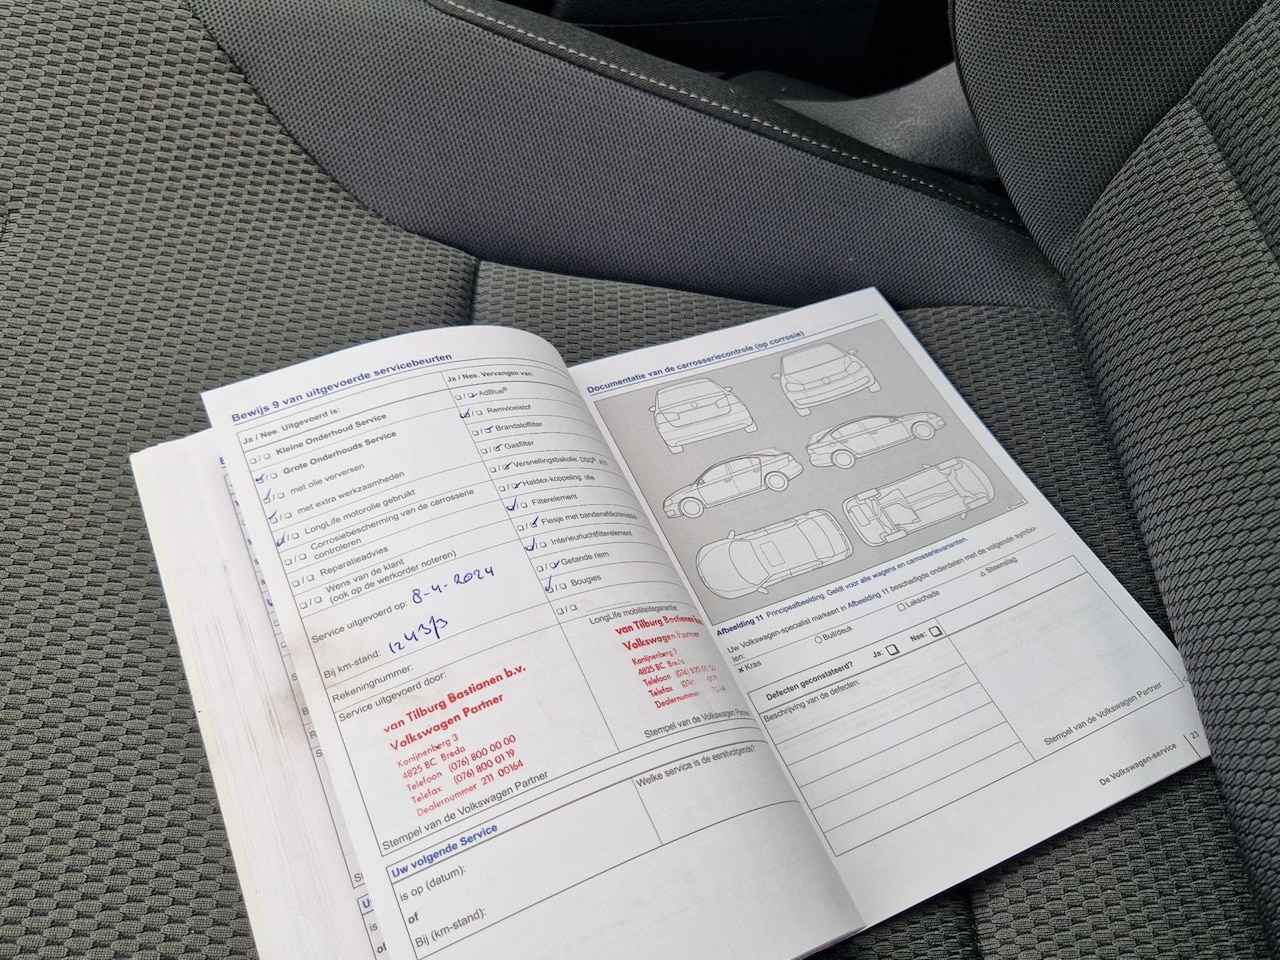 Bewijs 9 van uitgevoerde servicebeurten
Ja / Nee. Uitgevoerd is:
Kleine Onderhoud Service
Grote Onderhouds Service
met olie verversen
met extra werkzaamheden
LongLife motorolie gebruikt
Corrosiebescherming van de carrosserie
controleren
Reparatieadvies
Wens van de klant
(ook op de werkorder noteren)
Service uitgevoerd op: 8-4-2024
Bij km-stand:
Rekeningnummer:
Service uitgevoerd door:
van Tilburg Bastianen b.v.
Volkswagen Partner
Konijnenberg 3
4825 BC Breda
Telefoon (076) 800 00 00
Telefax (076) 800 01 19
Dealernummer 211 00164
Stempel van de Volkswagen Partner
Ja / Nee. Vervangen van:
AdBlue®
Remvloeistof
Brandstoffilter
Gasfilter
Versnellingsbakolie: DSG®
Haldex-koppeling: olie
Filterelement
Flesje met bandenafdichtmiddel
Interieurluchtfilterelement
Getande riem
Bougies
LongLife mobiliteitsgarantie:
van Tilburg Bastianen
Volkswagen Partner
Konijnenberg 3
4825 BC Breda
Telefoon (076) 800
Telefax
Dealernummer
Stempel van de Volkswagen Partner
Uw volgende Service
is op (datum):
of
Bij (km-stand):
Welke service is de eerstvolgende?
Documentatie van de carrosseriecontrole (op corrosie)
Afbeelding 11 Principeafbeelding. Geldt voor alle wagens en carrosserievarianten.
Uw Volkswagen-specialist markeert in Afbeelding 11 beschadigde onderdelen met de volgende symbo-
len:
x Kras
Buil/deuk
Lakschade
Steenslag
Defecten geconstateerd? Ja: Nee:
Beschrijving van de defecten:
Stempel van de Volkswagen Partner
De Volkswagen-service | 23